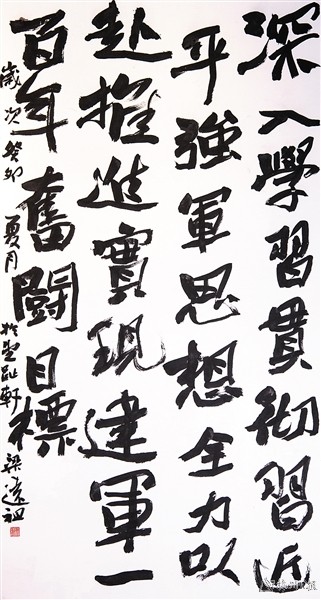 深入學習貫彻習近
平強軍思想全力以
赴推進實現建軍一
百年奮鬪目標
歲次癸卯夏月於墨趾軒梁遠祖